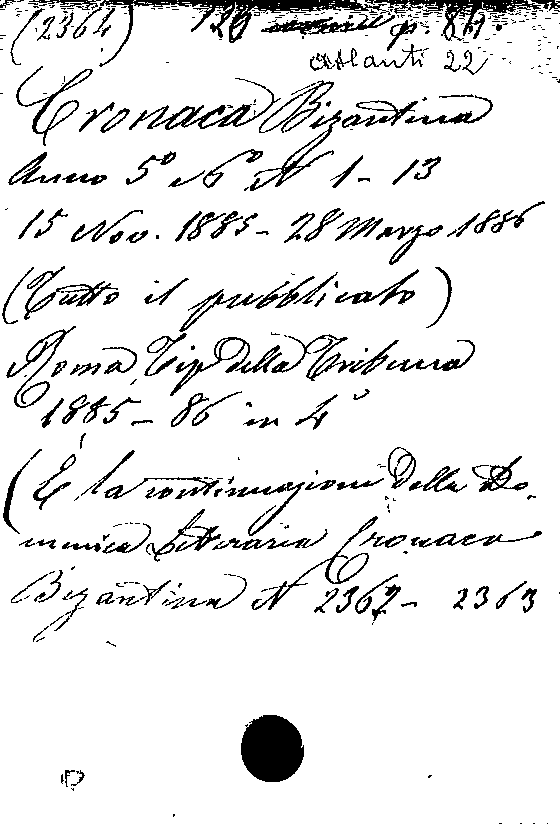 (2364) 126 p. 84.
Atlanti 22
Cronaca Bizantina
Anno 5º e 6º N 1 - 13
15 Nov. 1885 - 28 Marzo 1886
(Tutto il pubblicato)
Roma, Tip Della Tribuna
1885 - 86 in 4º
(È la continuazione Della Do-
menica Letteraria Cronaca
Bizantina N 2362 - 2363